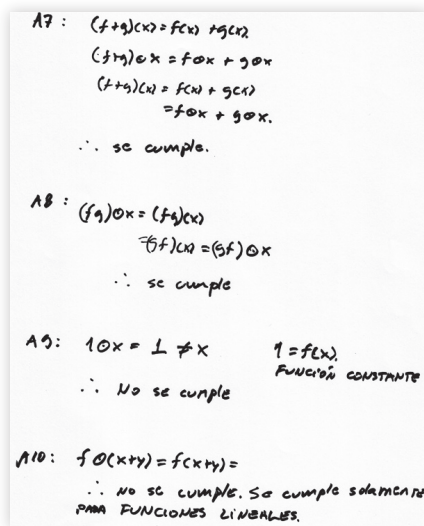 A7: (f+g)(x)=f(x)+g(x)
(f+g)⊙x = f⊙x + g⊙x
(f+g)(x) = f(x) + g(x)
= f⊙x + g⊙x.
∴ se cumple.
A8: (fg)⊙x = (fg)(x)
=(gf)(x) = (gf)⊙x
∴ se cumple
A9: 1⊙x = 1 ≠ x 1 = f(x).
FUNCIÓN CONSTANTE
∴ No se cumple
A10: f⊙(x+y) = f(x+y) =
∴ no se cumple. Se cumple solamente
PARA FUNCIONES LINEALES.